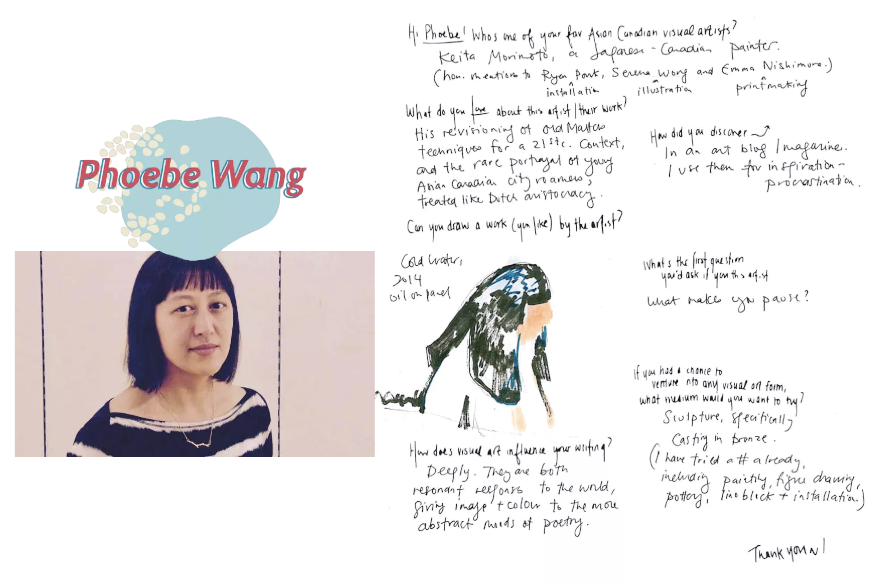 Phoebe Wang
Hi Phoebe! Who's one of your fav Asian Canadian visual artists?
Keita Morimoto, a Japanese-Canadian painter.
(hon. mentions to Ryan Park, Serena Wong and Emma Nishimura.)
installation illustration printmaking
What do you love about this artist/their work?
His revisioning of Old Master
techniques for a 21st c. context,
and the rare portrayal of young
Asian Canadian city roamers,
treated like Dutch aristocracy.
How did you discover
In an art blog/magazine.
I use them for inspiration-
procrastination.
Can you draw a work (you like) by the artist?
Cold Water,
2014
oil on panel
What's the first question
you'd ask if you this artist
What makes you pause?
If you had a chance to
venture nto any visual art form,
what medium would you want to try?
Sculpture, specifically
Casting in bronze.
(I have tried already,
including painting, figure drawing,
pottery, lino block + installation.)
How does visual art influence your writing?
Deeply. They are both
resonant responses to the world,
giving image + colour to the more
abstract moods of poetry.
Thank you!